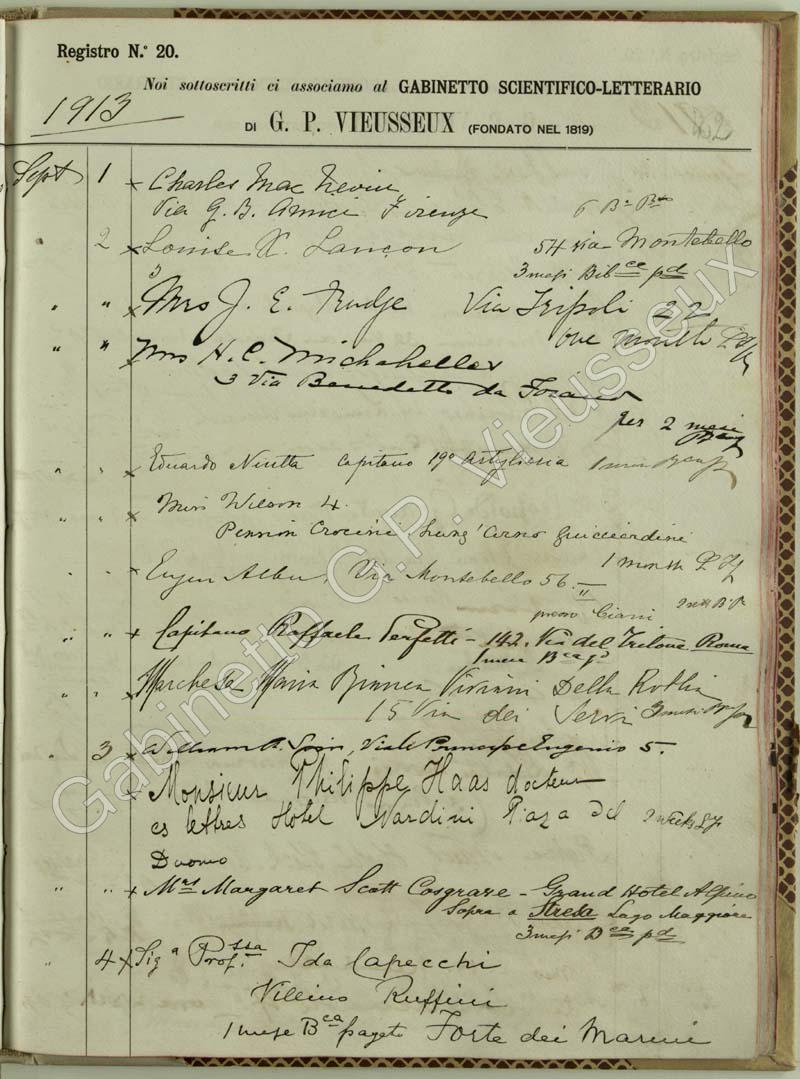 Registro N.° 20.
Noi sottoscritti ci associamo al GABINETTO SCIENTIFICO-LETTERARIO
1913
DI G. P. VIEUSSEUX (FONDATO NEL 1819)
Sept 1 x Charles Mac Nevin
Via G. B. Amici Firenze
2 x Louise X. Lançon 54 via Montebello
3 mesi Bib ce pd
" " x Mrs J. E. Rudge Via Tripoli 22
one month
" " x Mrs H. C. Michahelles
3 Via Benedetto da Foiano
per 2 mesi
" " x Eduardo Nintta Capitano 19o Artiglieria 1 mese
" " x Miss Wilson 4.
Pension Crocini Lung'Arno Guicciardini
1 month
" " x Eugen Albu, Via Montebello 56. II
presso Ciani
" " x Capitano Raffaele Perfetti - 142. Via del Tritone Roma
1 mese Bca
" " x Marchesa Maria Bianca Viviani Della Robbia
15 Via dei Servi 3 mesi
" 3 x William R. Viale Principe Eugenio 5.
x Monsieur Philippe Haas docteur
es lettres Hotel Nardini Piaza del
Duomo
" " x Mrs Margaret Scott Cosgrave - Grand Hotel Alpino
Sopra a Stresa Lago Maggiore
3 mesi Bca pd
" 4 x Siga Prof.ssa Ida Capecchi
Villino Ruffini
1 mese Bca pagato Forte dei Marmi
Gabinetto G.P. Vieusseux